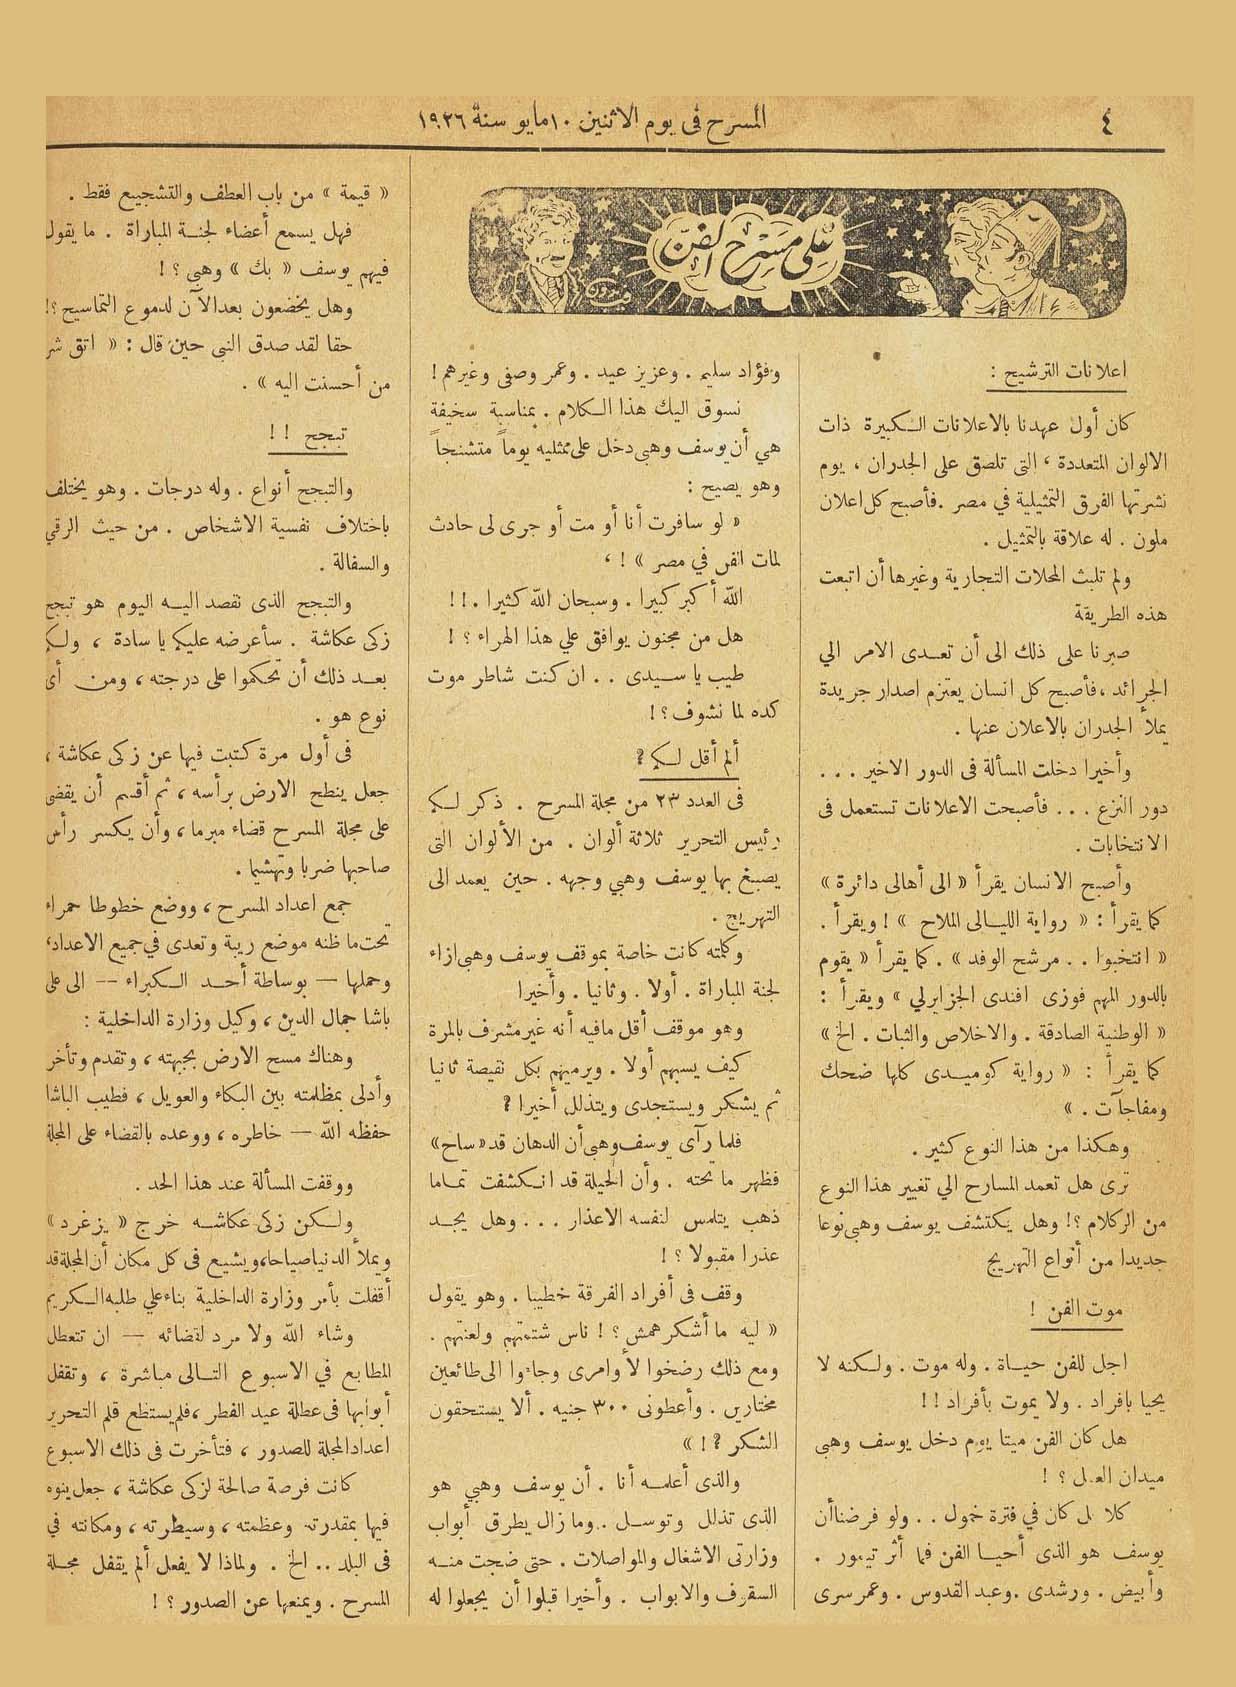 ٤
المسرح فى يوم الاثنين ١٠ مايو سنة ١٩٢٦
على مسرح الفن
اعلانات الترشيح :
كان أول عهدنا بالاعلانات الكبيرة ذات
الالوان المتعددة ، التى تلصق على الجدران ، يوم
نشرتها الفرق التمثيلية في مصر . فأصبح كل اعلان
ملون . له علاقة بالتمثيل .
ولم تلبث المحلات التجارية وغيرها أن اتبعت
هذه الطريقة
صبرنا على ذلك الى أن تعدى الامر الي
الجرائد ، فأصبح كل انسان يعتزم اصدار جريدة
يملأ الجدران بالاعلان عنها .
وأخيرا دخلت المسألة فى الدور الاخير . . .
دور النزع . . . فأصبحت الاعلانات تستعمل فى
الانتخابات .
وأصبح الانسان يقرأ « الى أهالى دائرة »
كما يقرأ : « رواية الليالى الملاح » ! ويقرأ .
« انتخبوا . . مرشح الوفد » . كما يقرأ « يقوم
بالدور المهم فوزى افندى الجزايرلي » ويقرأ :
« الوطنية الصادقة . والاخلاص والثبات . الخ »
كما يقرأ : « رواية كوميدى كلها ضحك
ومفاجآت . »
وهكذا من هذا النوع كثير .
ترى هل تعمد المسارح الي تغيير هذا النوع
من الركلام ؟! وهل يكتشف يوسف وهبى نوعا
جديدا من أنواع التهريج
موت الفن !
اجل للفن حياة . وله موت . ولكنه لا
يحيا بافراد . ولا يموت بأفراد ! !
هل كان الفن ميتا يوم دخل يوسف وهبى
ميدان العمل ؟ !
كلا بل كان في فترة خمول . . ولو فرضنا أن
يوسف هو الذى أحيا الفن فما أثر تيمور .
وأبيض . ورشدى . وعبد القدوس . وعمر سرى
وفؤاد سليم . وعزيز عيد . وعمر وصفى وغيرهم !
نسوق اليك هذا الكلام . بمناسبة سخيفة
هي أن يوسف وهبى دخل على ممثليه يوماً متشنجاً
وهو يصيح :
« لو سافرت أنا أو مت أو جرى لى حادث
لمات الفن في مصر » ! ،
الله أكبر كبيرا . وسبحان الله كثيرا . ! !
هل من مجنون يوافق علي هذا الهراء ؟ !
طيب يا سيدى . . ان كنت شاطر موت
كده لما نشوف ؟ !
ألم أقل لكم ؟
فى العدد ٢٣ من مجلة المسرح . ذكر لكم
رئيس التحرير ثلاثة ألوان . من الألوان التى
يصبغ بها يوسف وهبي وجهه . حين يعمد الى
التهريج .
وكلمته كانت خاصة بموقف يوسف وهبى ازاء
لجنة المباراة . أولا . وثانيا . وأخيرا
وهو موقف أقل مافيه أنه غير مشرف بالمرة
كيف يسبهم أولا . ويرميهم بكل نقيصة ثانيا
ثم يشكر ويستجدى ويتذلل أخيرا ؟
فلما رآى يوسف وهبى أن الدهان قد « ساح »
فظهر ما تحته . وأن الحيلة قد انكشفت تماما
ذهب يتلمس لنفسه الاعذار . . . وهل يجد
عذرا مقبولا ؟ !
وقف فى أفراد الفرقة خطيبا . وهو يقول
« ليه ما أشكرهمش ؟ ! ناس شتمتهم ولعنتهم .
ومع ذلك رضخوا لأوامرى وجاءوا الى طائعين
مختارين . وأعطونى ٣٠٠ جنيه . ألا يستحقون
الشكر ؟ ! »
والذى أعلمه أنا . أن يوسف وهبي هو
الذى تذلل وتوسل . وما زال يطرق أبواب
وزارتى الاشغال والمواصلات . حتى ضجت منه
السقوف والابواب . وأخيرا قبلوا أن يجعلوا له
« قيمة » من باب العطف والتشجيع فقط .
فهل يسمع أعضاء لجنة المباراة . ما يقول
فيهم يوسف « بك » وهبي ؟ !
وهل يخضعون بعد الآن لدموع التماسيح ؟!
حقا لقد صدق النبي حين قال : « اتق شر
من أحسنت اليه » .
تبجح ! !
والتبجح أنواع . وله درجات . وهو يختلف
باختلاف نفسية الاشخاص . من حيث الرقي
والسفالة .
والتبجح الذى نقصد اليه اليوم هو تبجح
زكى عكاشة . سأعرضه عليكم يا سادة ، ولكم
بعد ذلك أن تحكموا على درجته ، ومن أى
نوع هو .
فى أول مرة كتبت فيها عن زكى عكاشة ،
جعل ينطح الارض برأسه ، ثم أقسم أن يقضى
على مجلة المسرح قضاء مبرما ، وأن يكسر رأس
صاحبها ضربا وتهشيما .
جمع اعداد المسرح ، ووضع خطوطا حمراء
تحت ما ظنه موضع ريبة وتعدى في جميع الاعداد ،
وحملها — بوساطة أحد الكبراء — الى على
باشا جمال الدين ، وكيل وزارة الداخلية :
وهناك مسح الارض بجبهته ، وتقدم وتأخر
وأدلى بمظلمته بين البكاء والعويل ، فطيب الباشا
حفظه الله — خاطره ، ووعده بالقضاء على المجلة
ووقفت المسألة عند هذا الحد .
ولكن زكى عكاشه خرج « يزغرد »
ويملأ الدنيا صياحا ، ويشيع فى كل مكان أن المجلة قد
أقفلت بأمر وزارة الداخلية بناء علي طلبه الكريم
وشاء الله ولا مرد لقضائه — ان تتعطل
المطابع في الاسبوع التالى مباشرة ، وتقفل
أبوابها فى عطلة عيد الفطر ، فلم يستطع قلم التحرير
اعداد المجلة للصدور ، فتأخرت فى ذلك الاسبوع
كانت فرصة صالحة لزكى عكاشة ، جعل ينوه
فيها بمقدرته وعظمته ، وسيطرته ، ومكانته في
فى البلد . . الخ . ولماذا لا يفعل ألم يقفل مجلة
المسرح . ويمنعها عن الصدور ؟ !